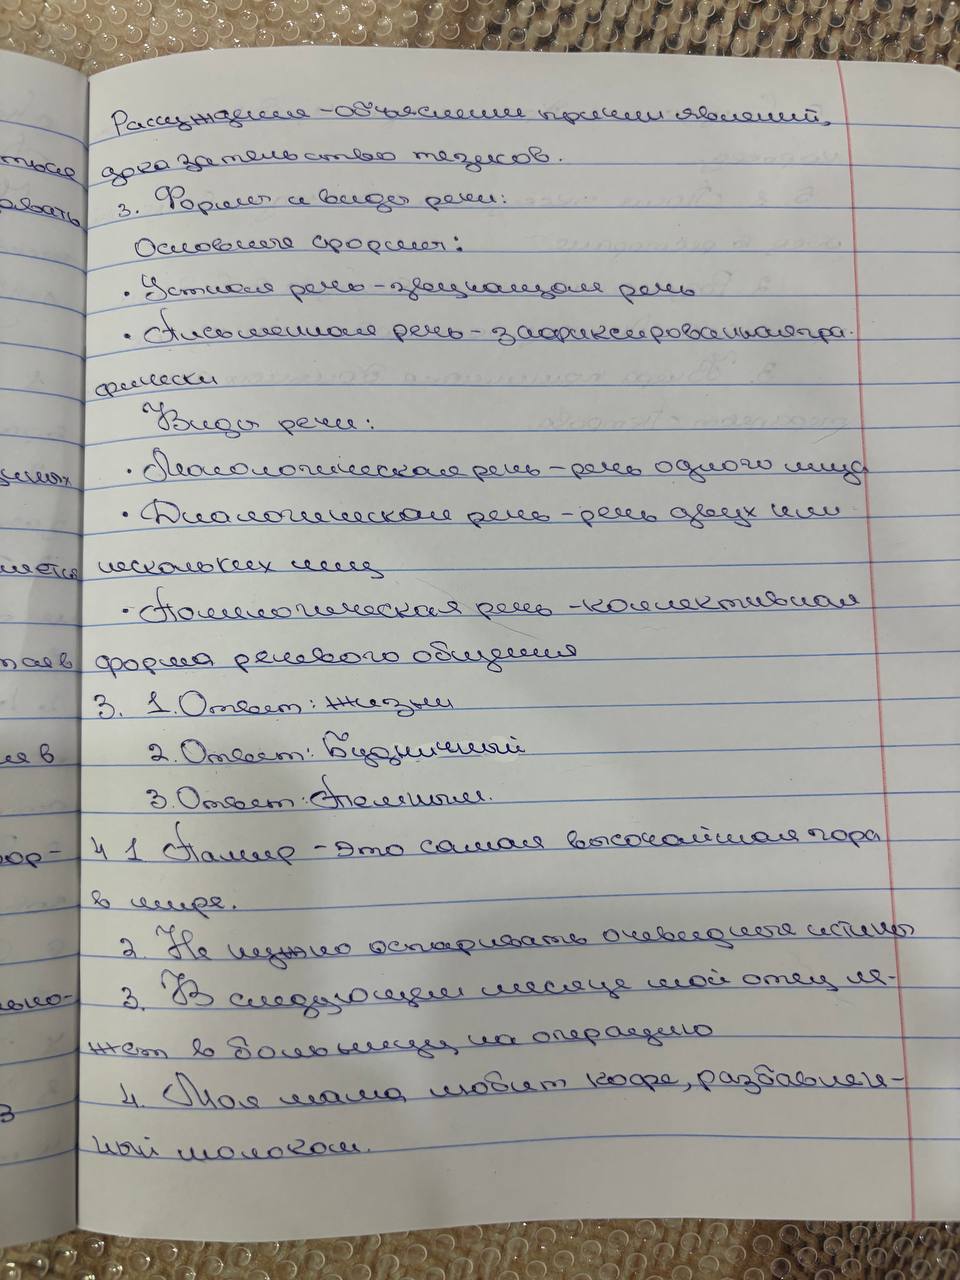 Рассуждения - объяснение причин явлений,
доказательство тезисов.
3. Формы и виды речи:
Основные формы:
• Устная речь - звучащая речь
• Письменная речь - зафиксированная гра-
фически
Виды речи:
• Монологическая речь - речь одного лица
• Диалогическая речь - речь двух или
нескольких лиц
• Полилогическая речь - коллективная
форма речевого общения
3. 1. Ответ: жизни
2. Ответ: Будничный
3. Ответ: Полным.
4 1 Памир - это самая высочайшая гора
в мире.
2. Не нужно оспаривать очевидные истины
3. В следующем месяце мой отец ля-
жет в больницу на операцию
4. Моя мама любит кофе, разбавлен-
ный молоком.